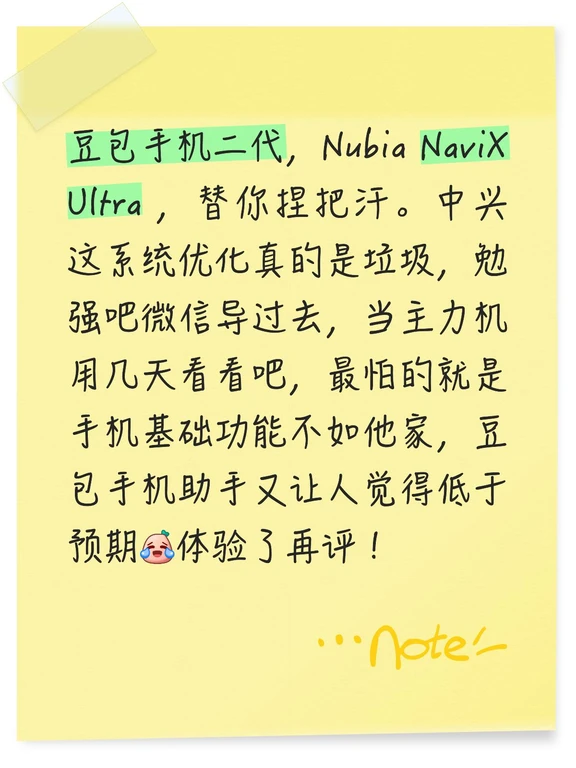 豆包手机二代，Nubia NaviX
Ultra ，替你捏把汗。中兴
这系统优化真的是垃圾，勉
强吧微信导过去，当主力机
用几天看看吧，最怕的就是
手机基础功能不如他家，豆
包手机助手又让人觉得低于
预期体验了再评！
...note